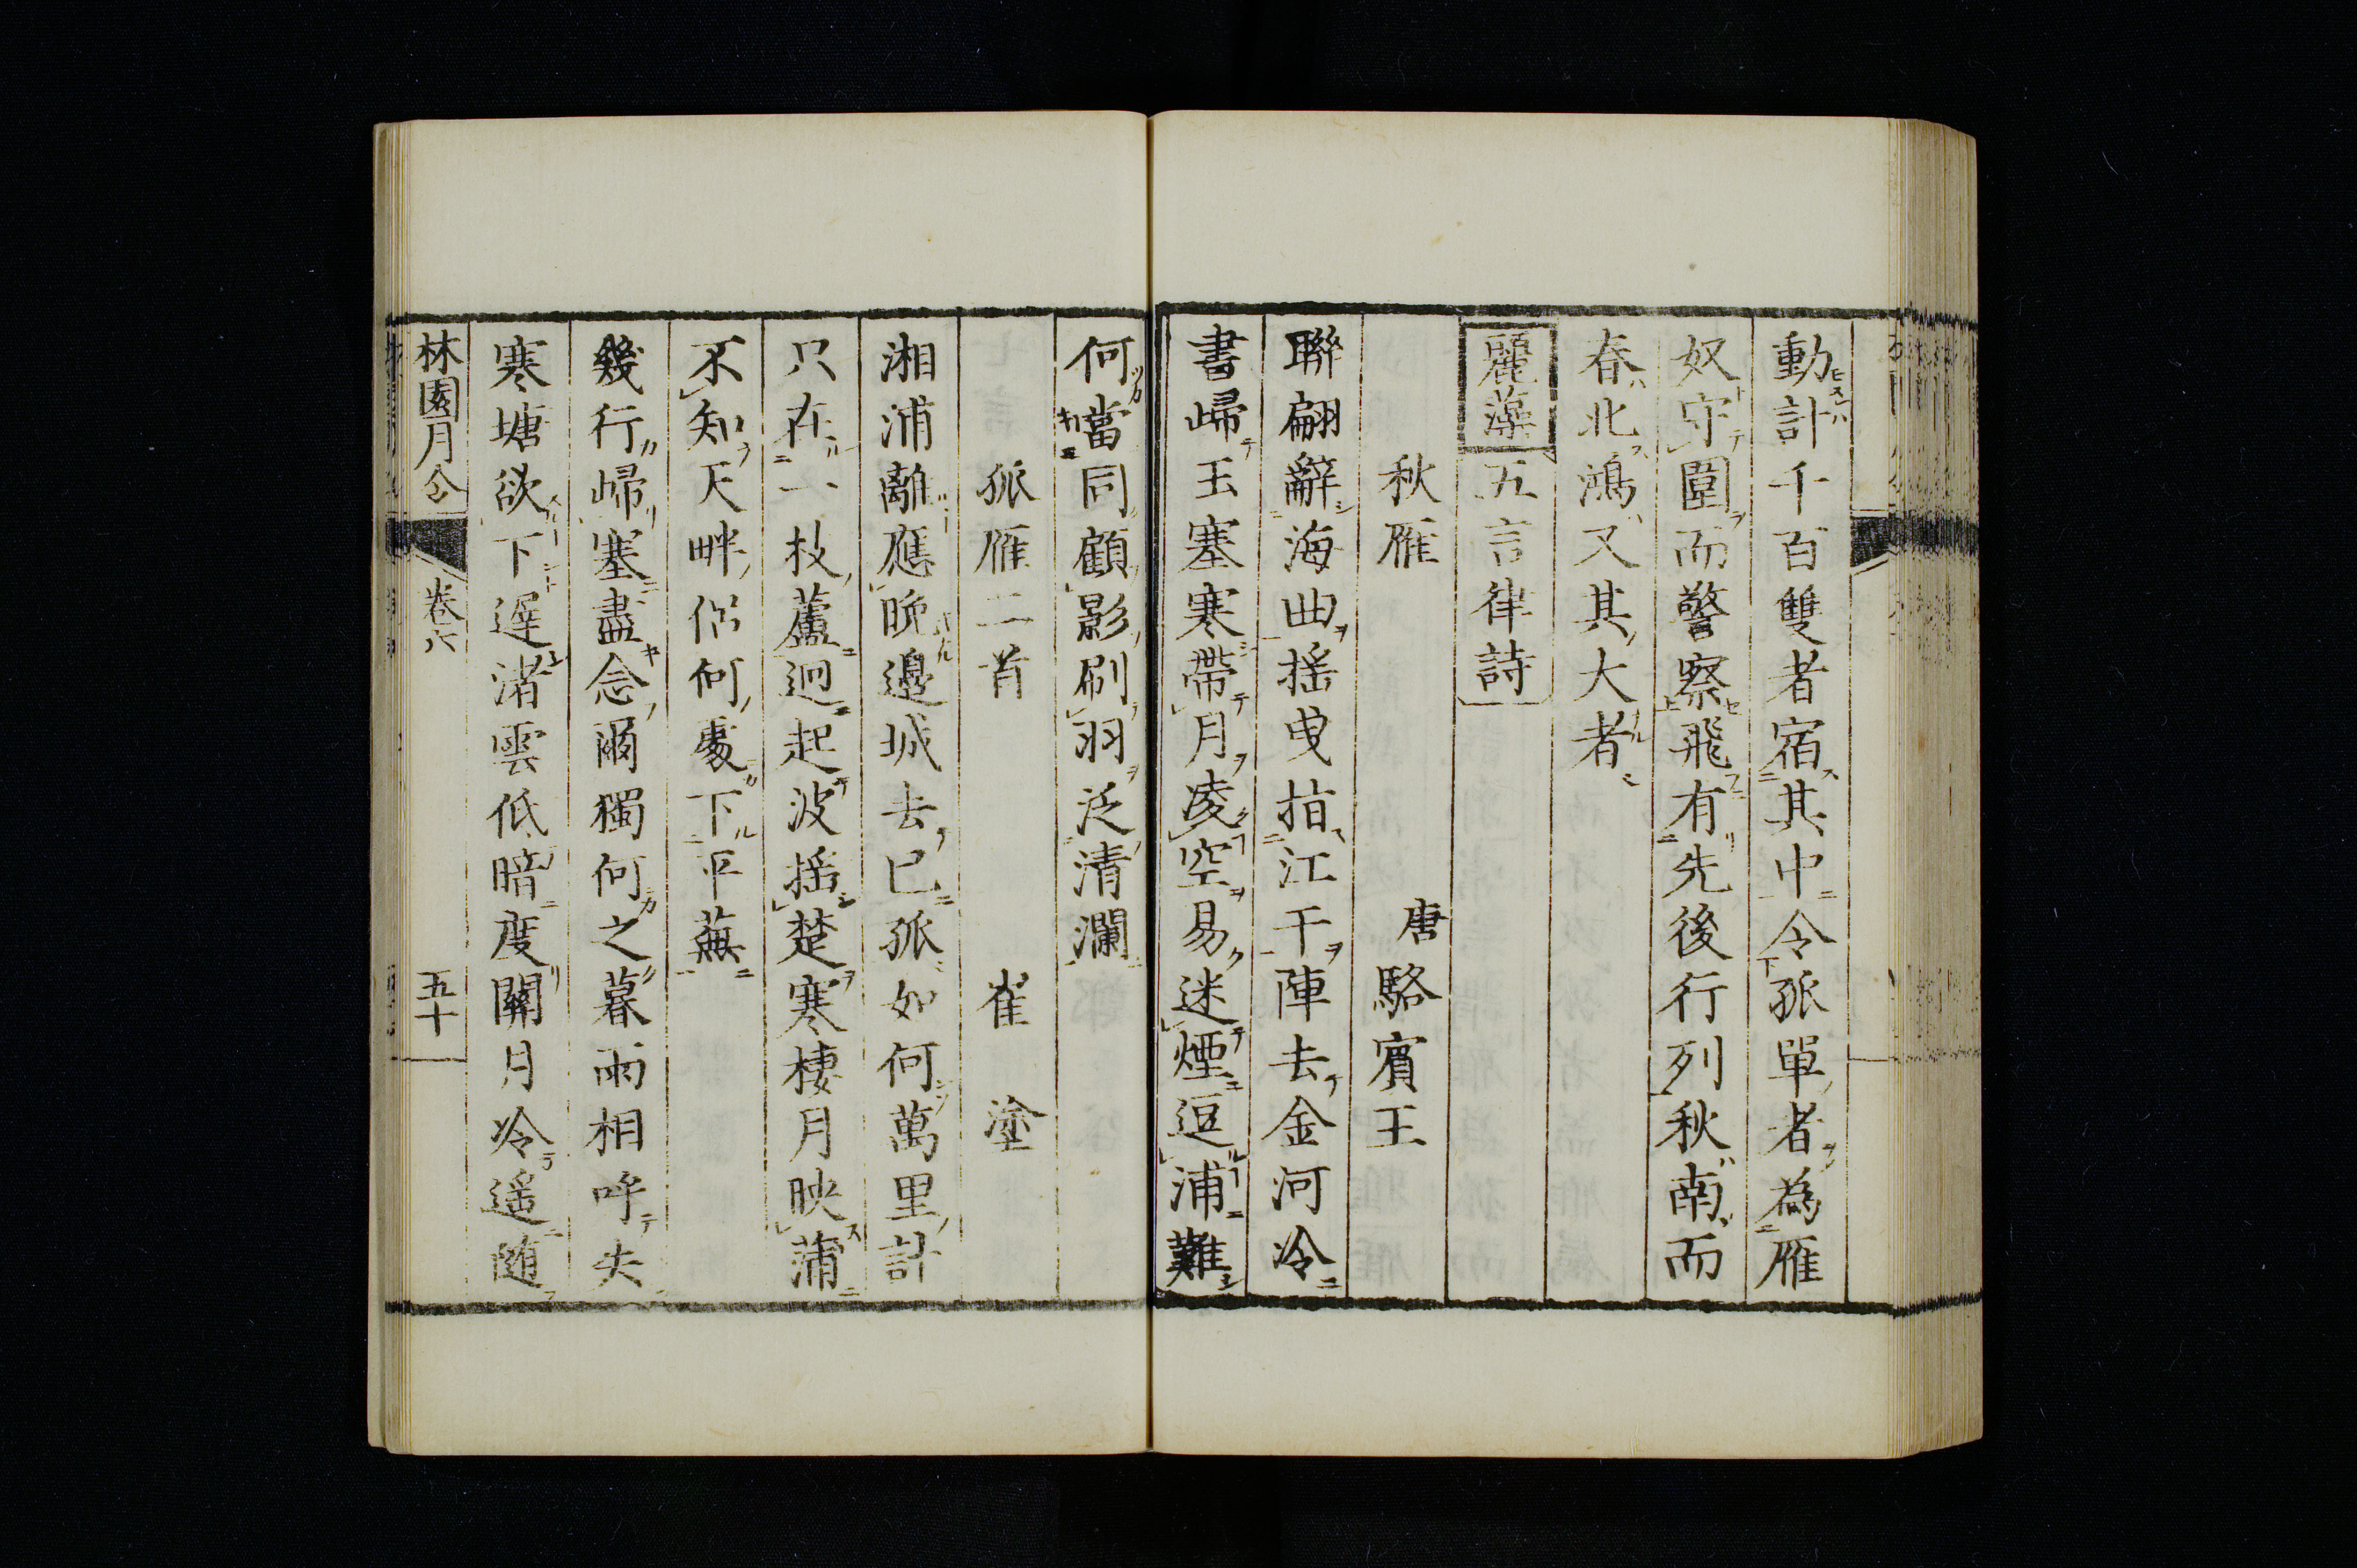 動計千百雙者宿其中令孤單者為雁
奴守圍而警察飛有先後行列秋南而
春北鴻又其大者
麗藻 五言律詩
秋雁 唐 駱賓王
聯翩辭海曲揺曳指江干陣去金河冷
書歸玉塞寒帶月凌空易迷煙逗浦難
何當同顧影刷羽泛清瀾
孤雁二首 崔塗
湘浦離應晚邊城去已孤如何萬里計
只在一枝蘆迥起波揺楚寒棲月映蒲
不知天畔侶何處下平蕪
幾行歸塞盡念爾獨何之暮雨相呼失
寒塘欲下遲渚雲低暗度關月冷遙随
林園月令 卷六 五十